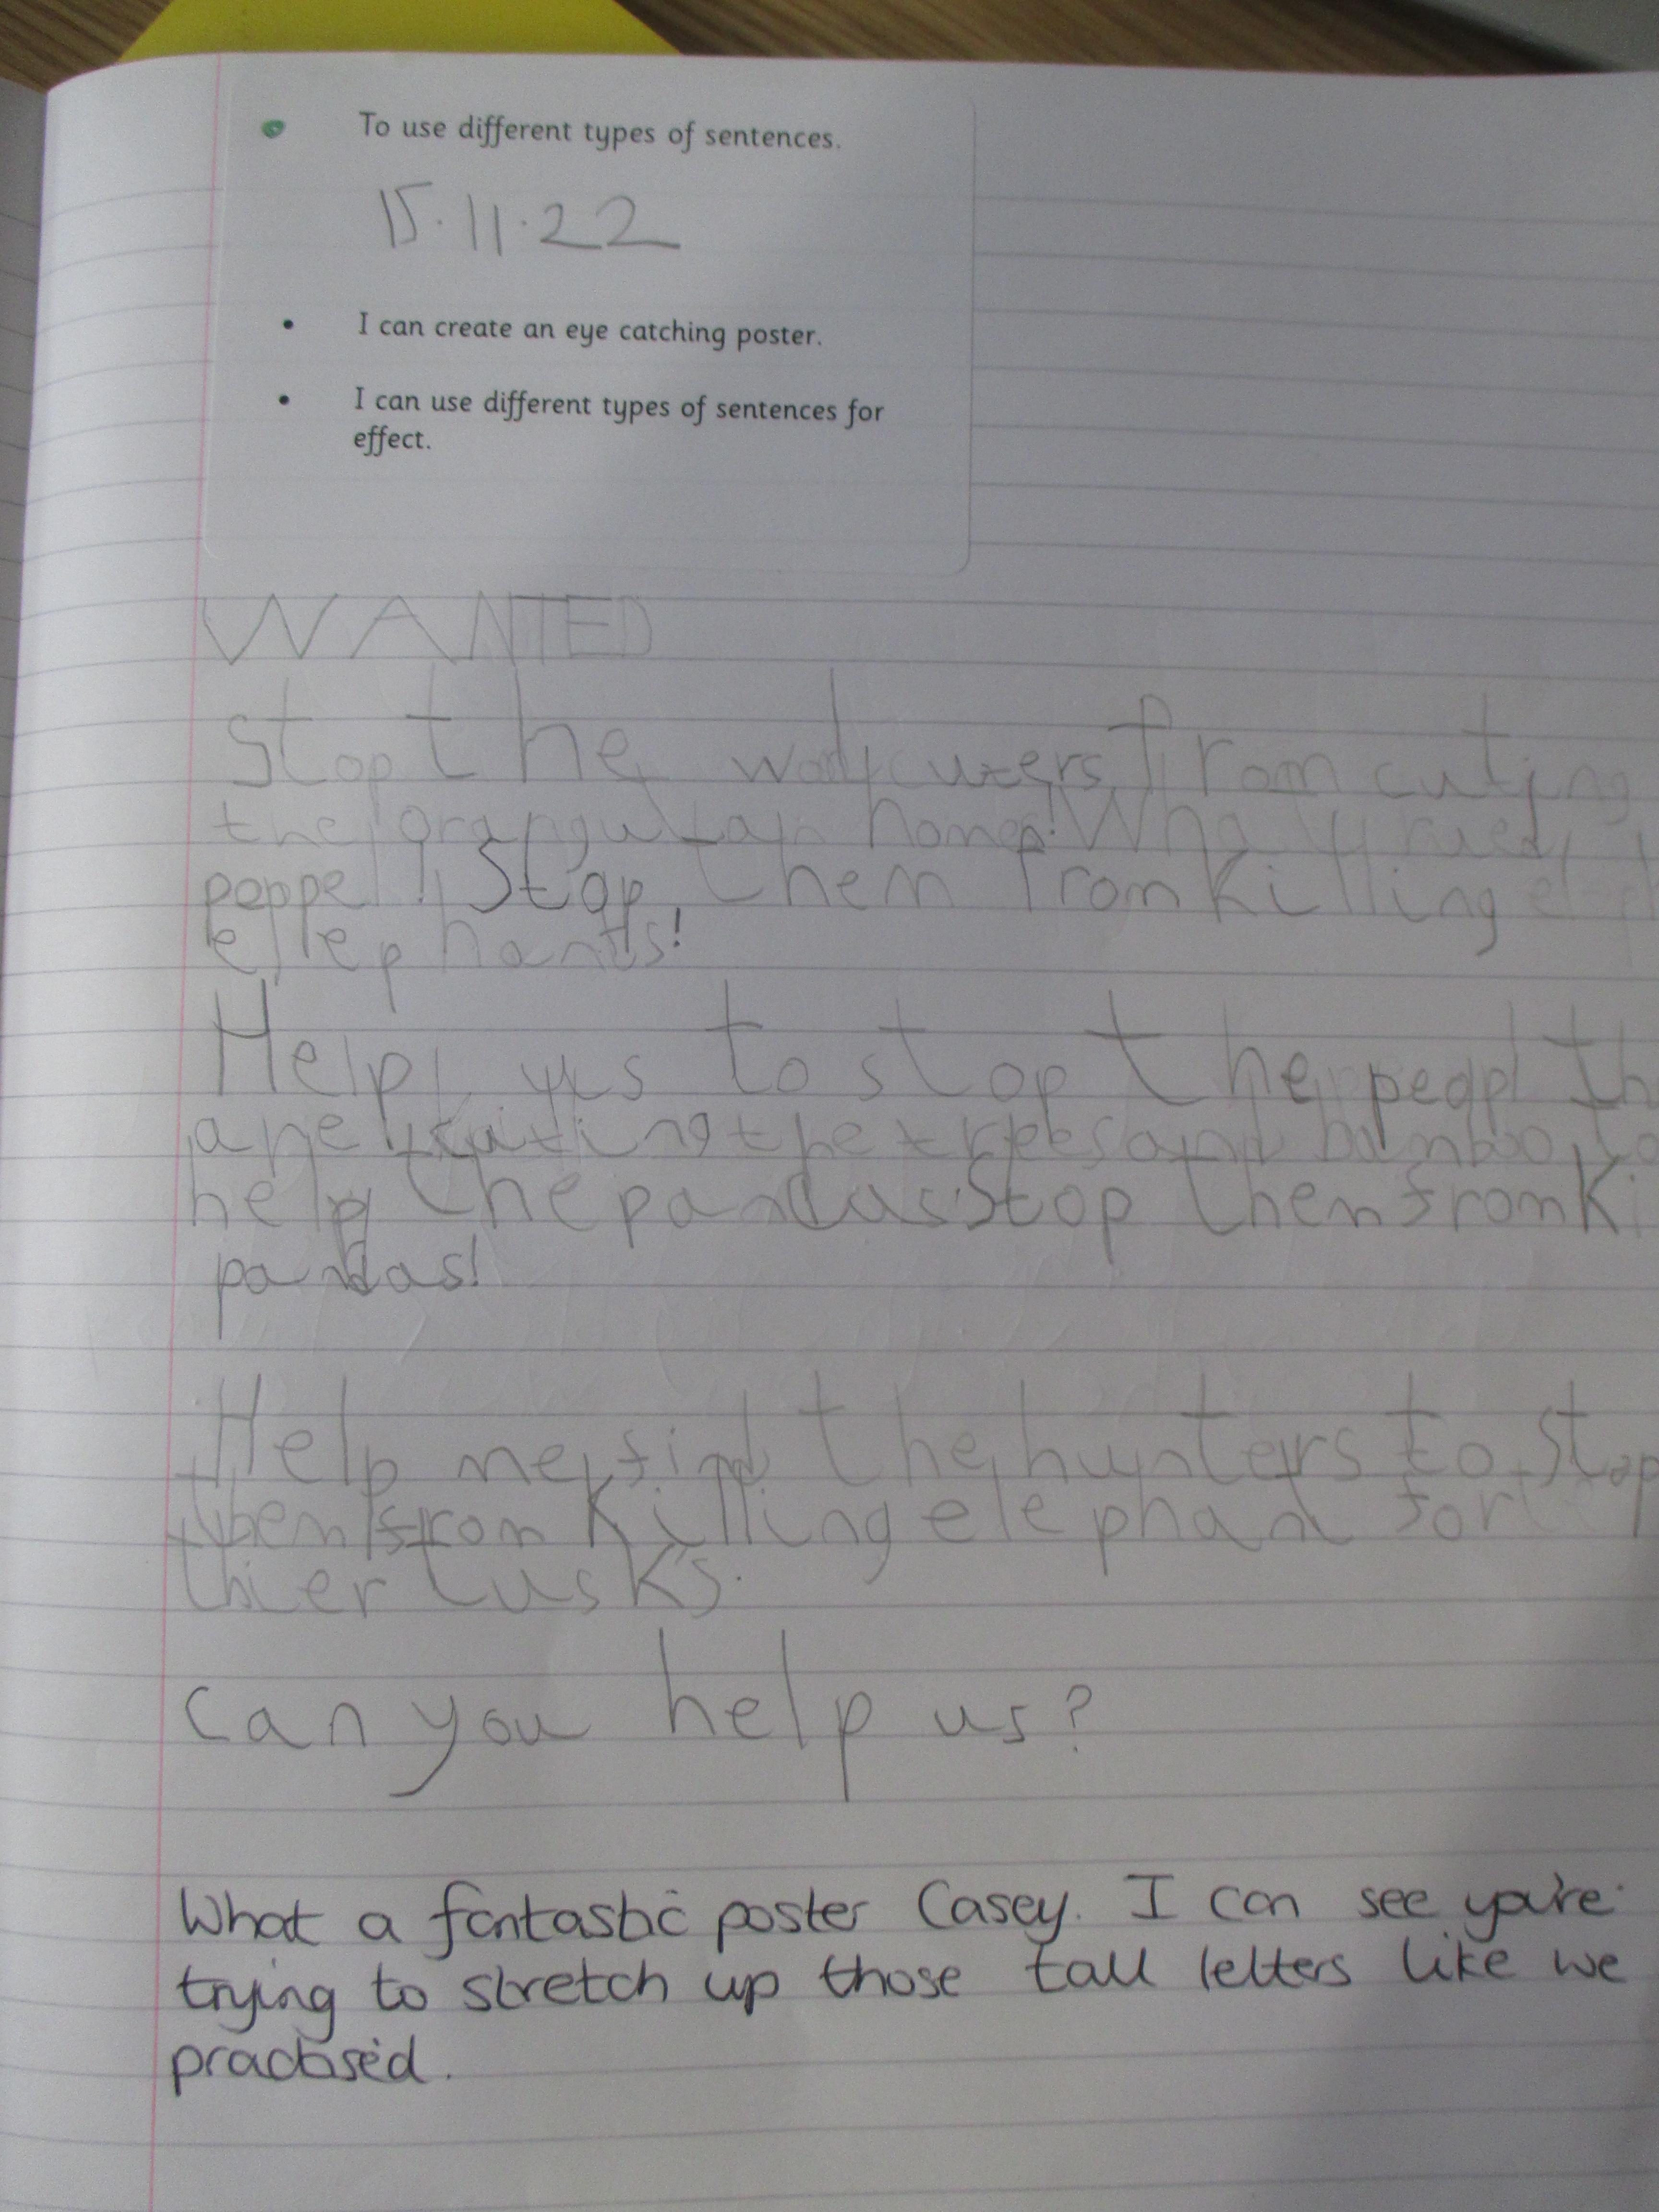 To use different types of sentences.
15.11.22
I can create an eye catching poster.
I can use different types of sentences for
effect.
WANTED
Stop the from cuting
the orangutan homes! Wha
poppel! Stop them from killing
ellephants!
Help us to stop the peopl th
are cuting the trees and bamboo to
help the pandas. Stop them from Ki
pandas!
Help me find the hunters to stop
them from Killing elephan for
thier tusks.
can you help us?
What a fantastic poster Casey. I can see you're
trying to stretch up those tall letters like we
practised.